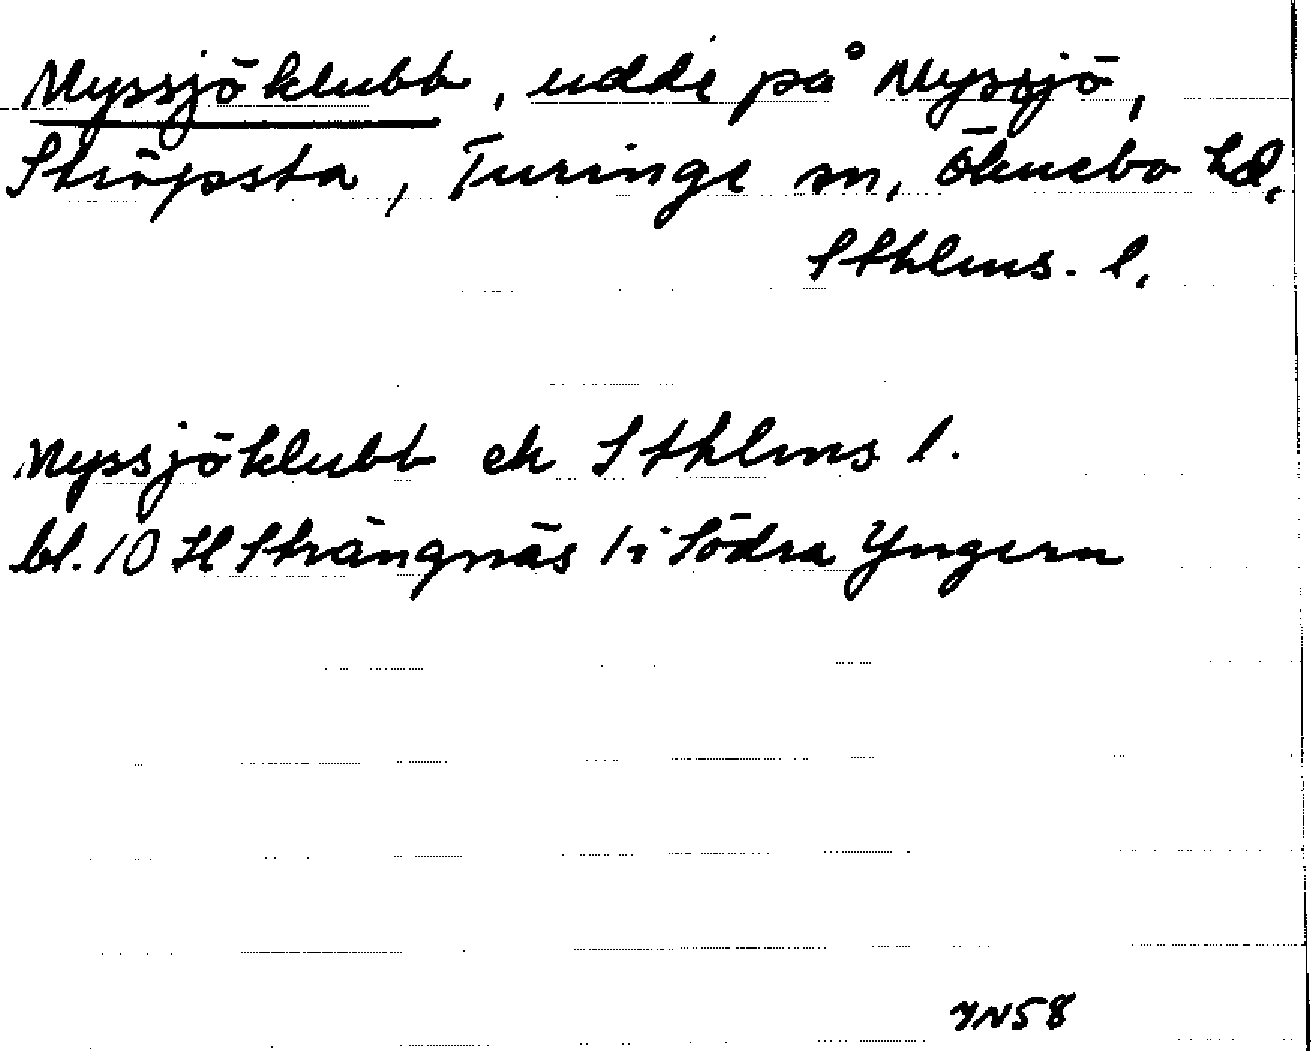 Nyssjöklubb, udde på Nyssjö,
Ströpsta, Turinge sn, Öknebo hd.
Sthlms. l.
Nyssjöklubb ek Sthlms l.
bl. 10 H Strängnäs 1 i Södra Yngern
YN58